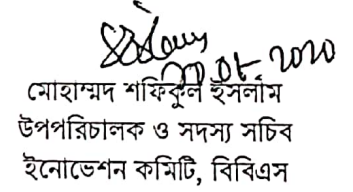 মোহাম্মদ শফিকুল ইসলাম
উপপরিচালক ও সদস্য সচিব
ইনোভেশন কমিটি, বিবিএস